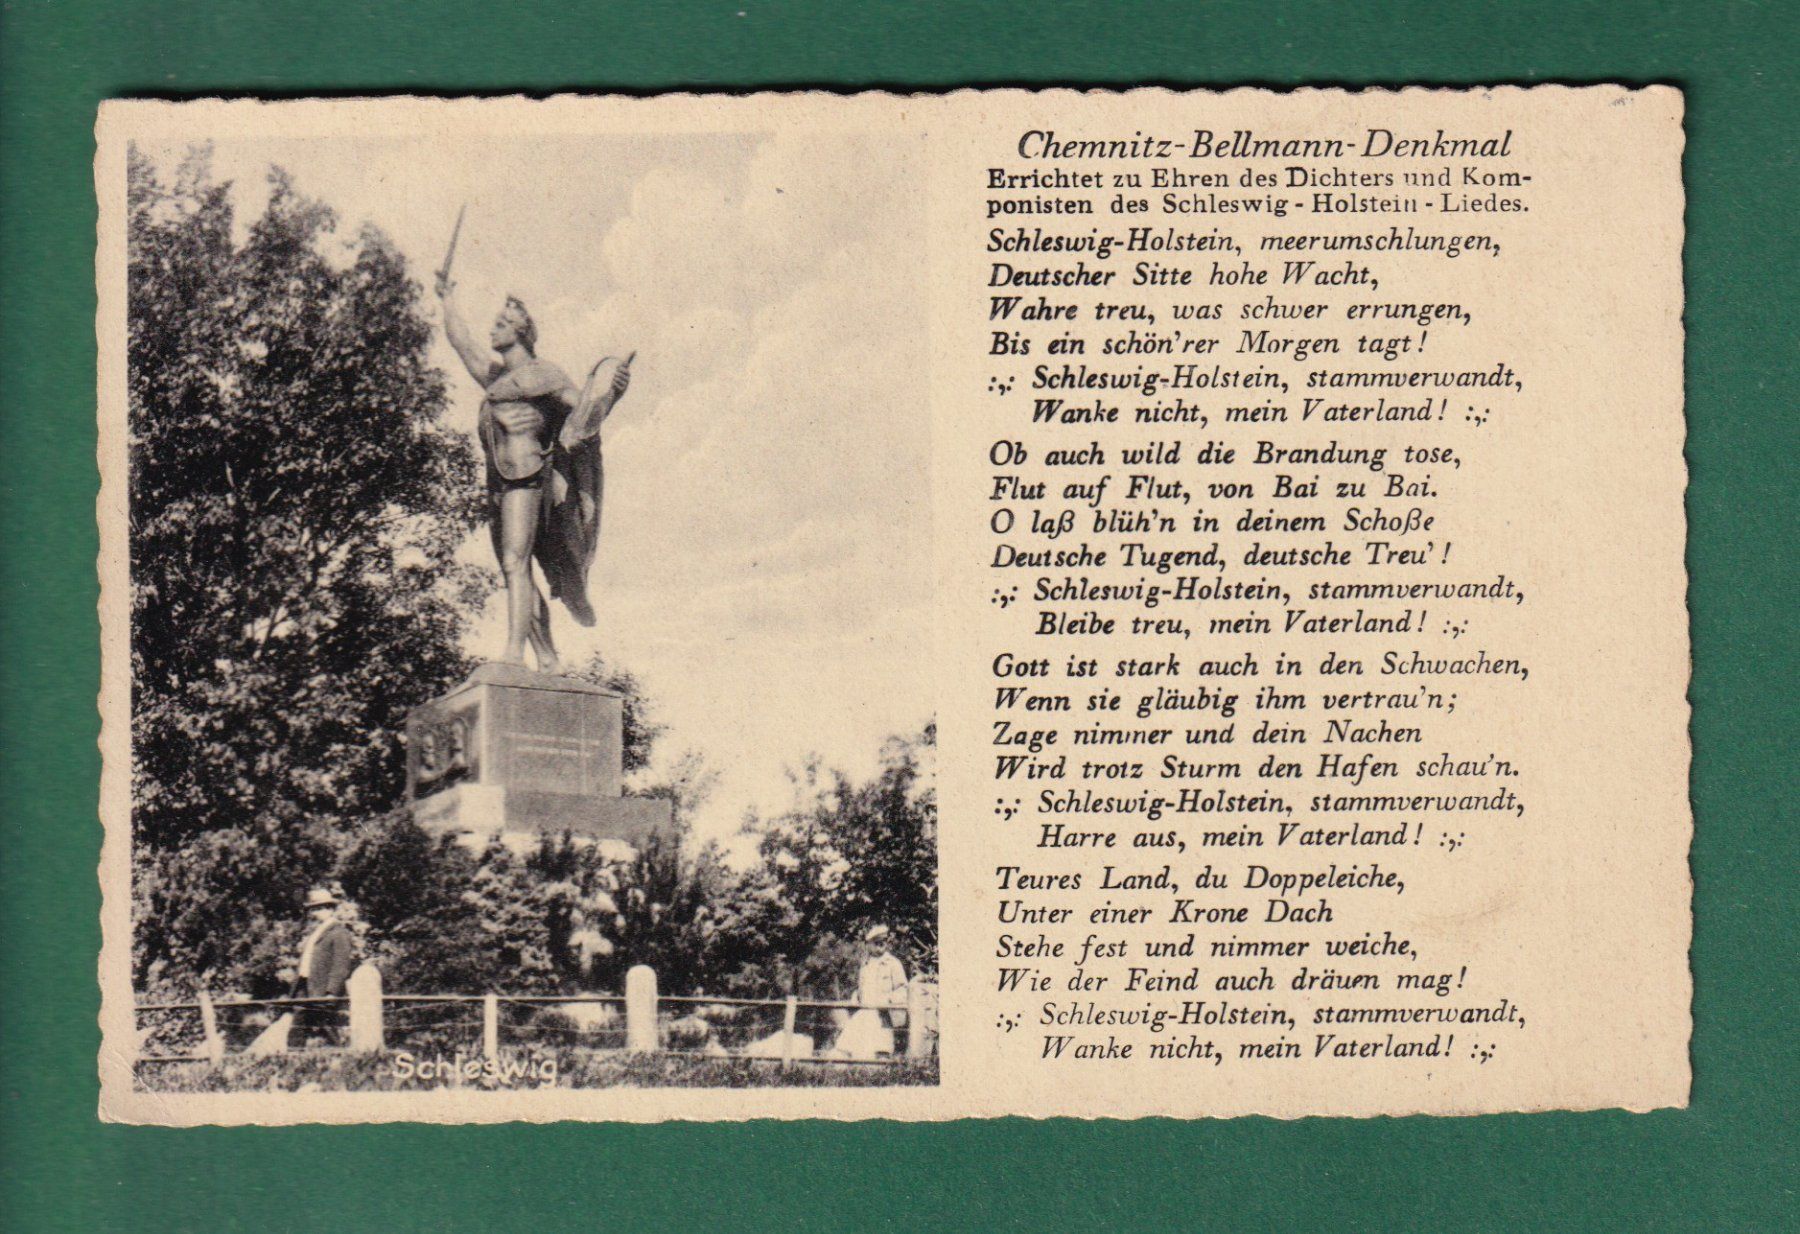 Chemnitz-Bellmann-Denkmal
Errichtet zu Ehren des Dichters und Kom-
ponisten des Schleswig - Holstein - Liedes.
Schleswig-Holstein, meerumschlungen,
Deutscher Sitte hohe Wacht,
Wahre treu, was schwer errungen,
Bis ein schön'rer Morgen tagt!
:,: Schleswig-Holstein, stammverwandt,
Wanke nicht, mein Vaterland! :,:
Ob auch wild die Brandung tose,
Flut auf Flut, von Bai zu Bai.
O laß blüh'n in deinem Schoße
Deutsche Tugend, deutsche Treu'!
:,: Schleswig-Holstein, stammverwandt,
Bleibe treu, mein Vaterland! :,:
Gott ist stark auch in den Schwachen,
Wenn sie gläubig ihm vertrau'n;
Zage nimmer und dein Nachen
Wird trotz Sturm den Hafen schau'n.
:,: Schleswig-Holstein, stammverwandt,
Harre aus, mein Vaterland! :,:
Teures Land, du Doppeleiche,
Unter einer Krone Dach
Stehe fest und nimmer weiche,
Wie der Feind auch dräuen mag!
:,: Schleswig-Holstein, stammverwandt,
Wanke nicht, mein Vaterland! :,:
Schleswig